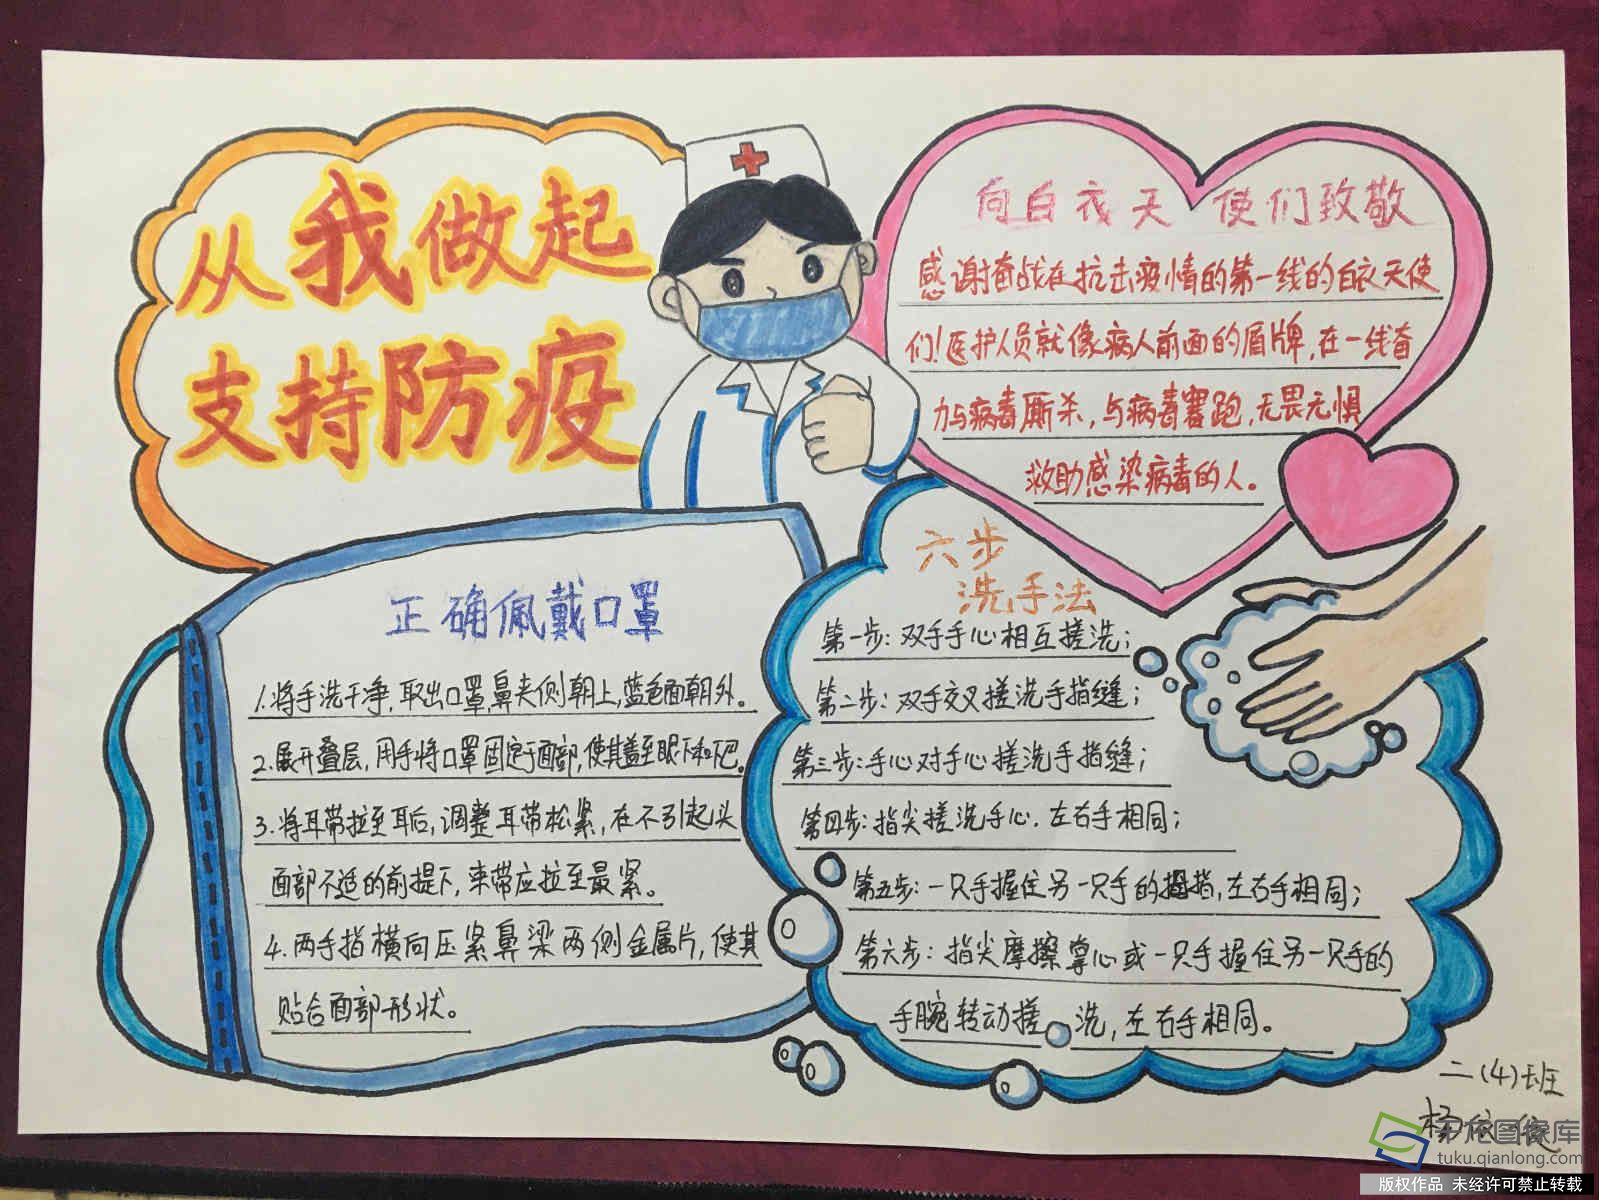 从我做起
支持防疫
向白衣天使们致敬
感谢奋战在抗击疫情的第一线的白衣天使
们！医护人员就像病人前面的盾牌，在一线奋
力与病毒厮杀，与病毒赛跑，无畏无惧
救助感染病毒的人。
正确佩戴口罩
1.将手洗干净，取出口罩，鼻夹侧朝上，蓝色面朝外。
2.展开叠层，用手将口罩固定于面部，使其盖至眼下和下巴。
3.将耳带拉至耳后，调整耳带松紧，在不引起头
面部不适的前提下，束带应拉至最紧。
4.两手指横向压紧鼻梁两侧金属片，使其
贴合面部形状。
六步
洗手法
第一步：双手手心相互搓洗；
第二步：双手交叉搓洗手指缝；
第三步：手心对手心搓洗手指缝；
第四步：指尖搓洗手心，左右手相同；
第五步：一只手握住另一只手的拇指，左右手相同；
第六步：指尖摩擦掌心或一只手握住另一只手的
手腕转动搓洗，左右手相同。
二(4)班
千龙图像库
tuku.qianlong.com
版权作品 未经许可禁止转载